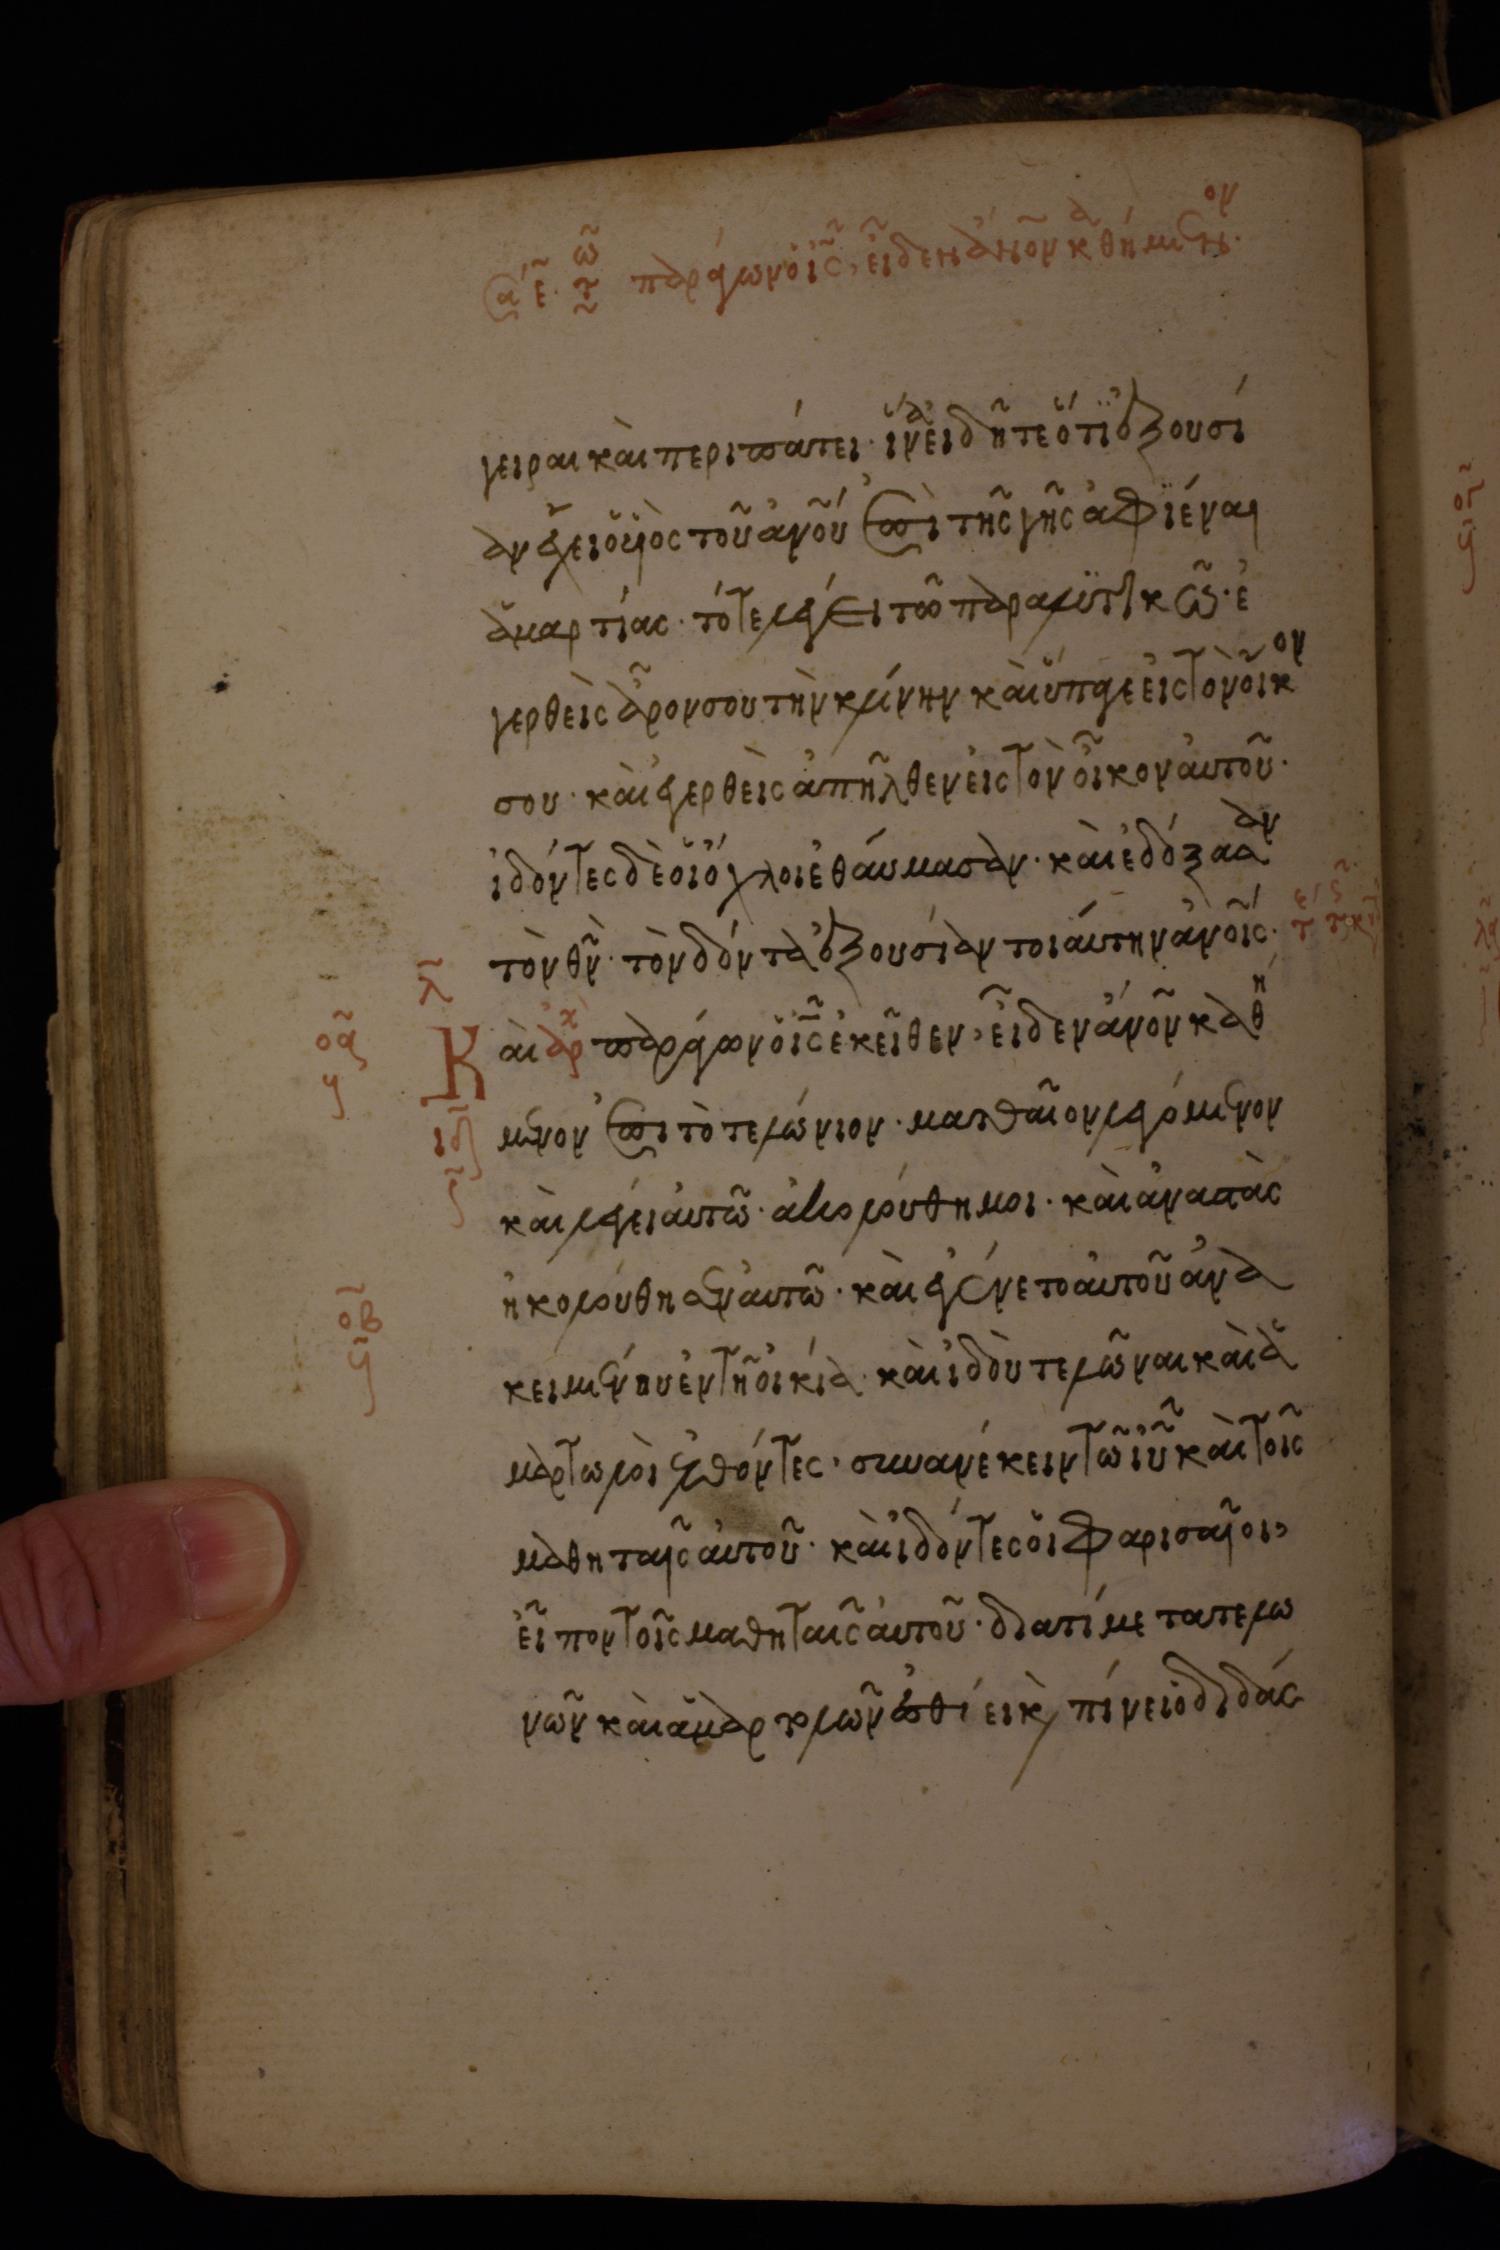 παράγων ὁ ις, εἶδεν ἀνον καθήμενον.
γειραι καὶ περιπάτει· ἵνα εἰδῆτε ὅτι ἐξουσί
αν ἔχει ὁ υἱὸς τοῦ ἀνου ἐπὶ τῆς γῆς ἀφιέναι
ἁμαρτίας· τότε λέγει τῶ παραλϋτικῶ· ἐ
γερθεὶς ἆρόν σου τὴν κλίνην καὶ ὕπαγε εἰς τὸν οἶκον
σου· καὶ ἐγερθεὶς ἀπῆλθεν εἰς τὸν οἶκον αὐτοῦ·
ἰδόντες δὲ οἱ ὄχλοι ἐθάυμασαν· καὶ ἐδόξασαν
τὸν θν· τὸν δόντα ἐξουσίαν τοιάυτην ἀνοις·
λ
Καὶ αρχ παράγων ὁ ις ἐκεῖθεν, εἶδεν ἀνον καθή
οα
ιδ
μενον ἐπὶ τὸ τελώνιον· ματθαῖον λεγόμενον
καὶ λέγει αὐτῶ· ἀκολούθη μοι· καὶ ἀναστὰς
ἠκολούθησεν αὐτῶ· καὶ ἐγένετο αὐτοῦ ἀνα
οβ
κειμένου ἐν τῆ οἰκία· καὶ ἰδοὺ τελῶναι καὶ ἁ
μαρτωλοὶ ἐλθόντες· συνανέκειντο τῶ ιυ καὶ τοῖς
μαθηταῖς αὐτοῦ· καὶ ἰδόντες οἱ φαρισαῖοι,
εἶπον τοῖς μαθηταῖς αὐτοῦ· διατί μετα τελω
νῶν καὶ ἁμαρτωλῶν ἐσθίει κ πίνει ὁ διδάσ